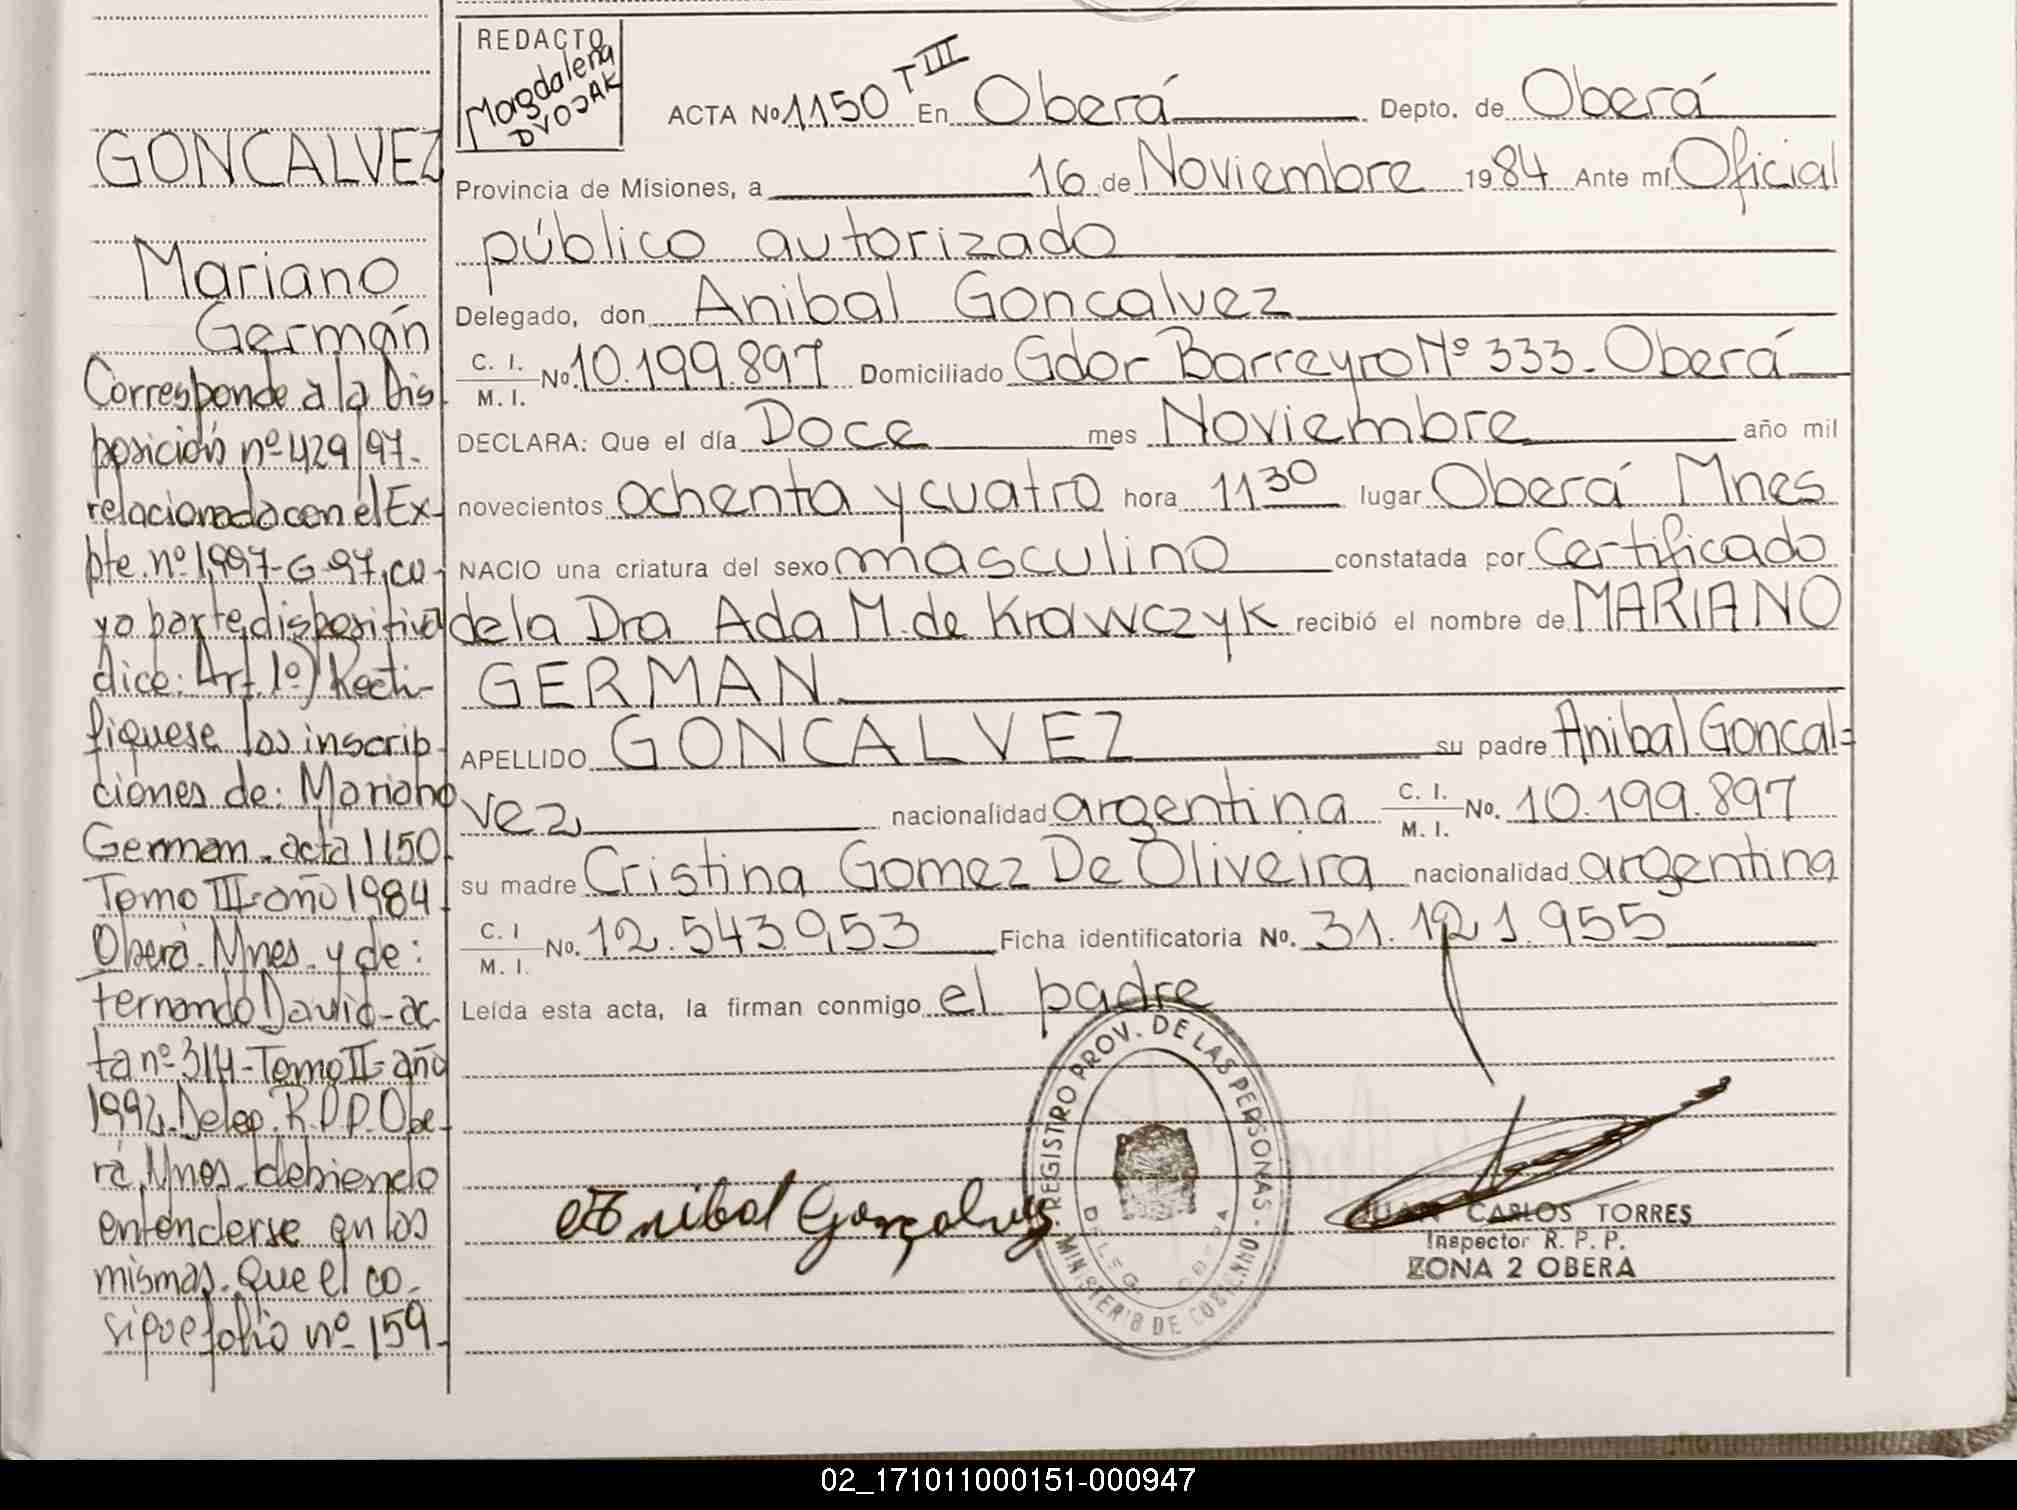 REDACTO
Magdalena
DVOJAK
ACTA No 1150 T III En Oberá Depto. de Oberá
Provincia de Misiones, a 16 de Noviembre 1984 Ante mí Oficial
público autorizado
Delegado, don Anibal Goncalvez
C. I.
M. I. No. 10.199.897 Domiciliado Gdor Barreyro Nº 333 - Oberá
DECLARA: Que el día Doce mes Noviembre año mil
novecientos ochenta y cuatro hora 11 30 lugar Oberá Mnes
NACIO una criatura del sexo masculino constatada por Certificado
de la Dra Ada M. de Krawczyk recibió el nombre de MARIANO
GERMAN
APELLIDO GONCALVEZ su padre Anibal Goncal=
vez nacionalidad argentina C. I.
M. I. No. 10.199.897
su madre Cristina Gomez De Oliveira nacionalidad argentina
C. I
M. I. No. 12.543.953 Ficha identificatoria No. 31.121.955
Leída esta acta, la firman conmigo el padre
GONCALVEZ
Mariano
Germán
Corresponde a la Dis-
posición nº 429/97-
relacionada con el Ex-
pte. nº 1997-G-97, cu-
ya parte dispositiva
dice: Art. 1º) Recti-
fíquese las inscrip-
ciones de: Mariano
German - acta 1150
Tomo III - año 1984
Oberá - Mnes - y de:
Fernando David - ac-
ta nº 314 - Tomo II - año
1992. Deleg. R.P.P. Obe-
rá, Mnes. debiendo
entenderse en los
mismas. Que el co-
sigue folio nº 159-
Anibal Gonçalves
REGISTRO PROV. DE LAS PERSONAS - MINISTERIO DE GOBIERNO
DELEG. OBERA
JUAN CARLOS TORRES
Inspector R. P. P.
ZONA 2 OBERA
02_171011000151-000947